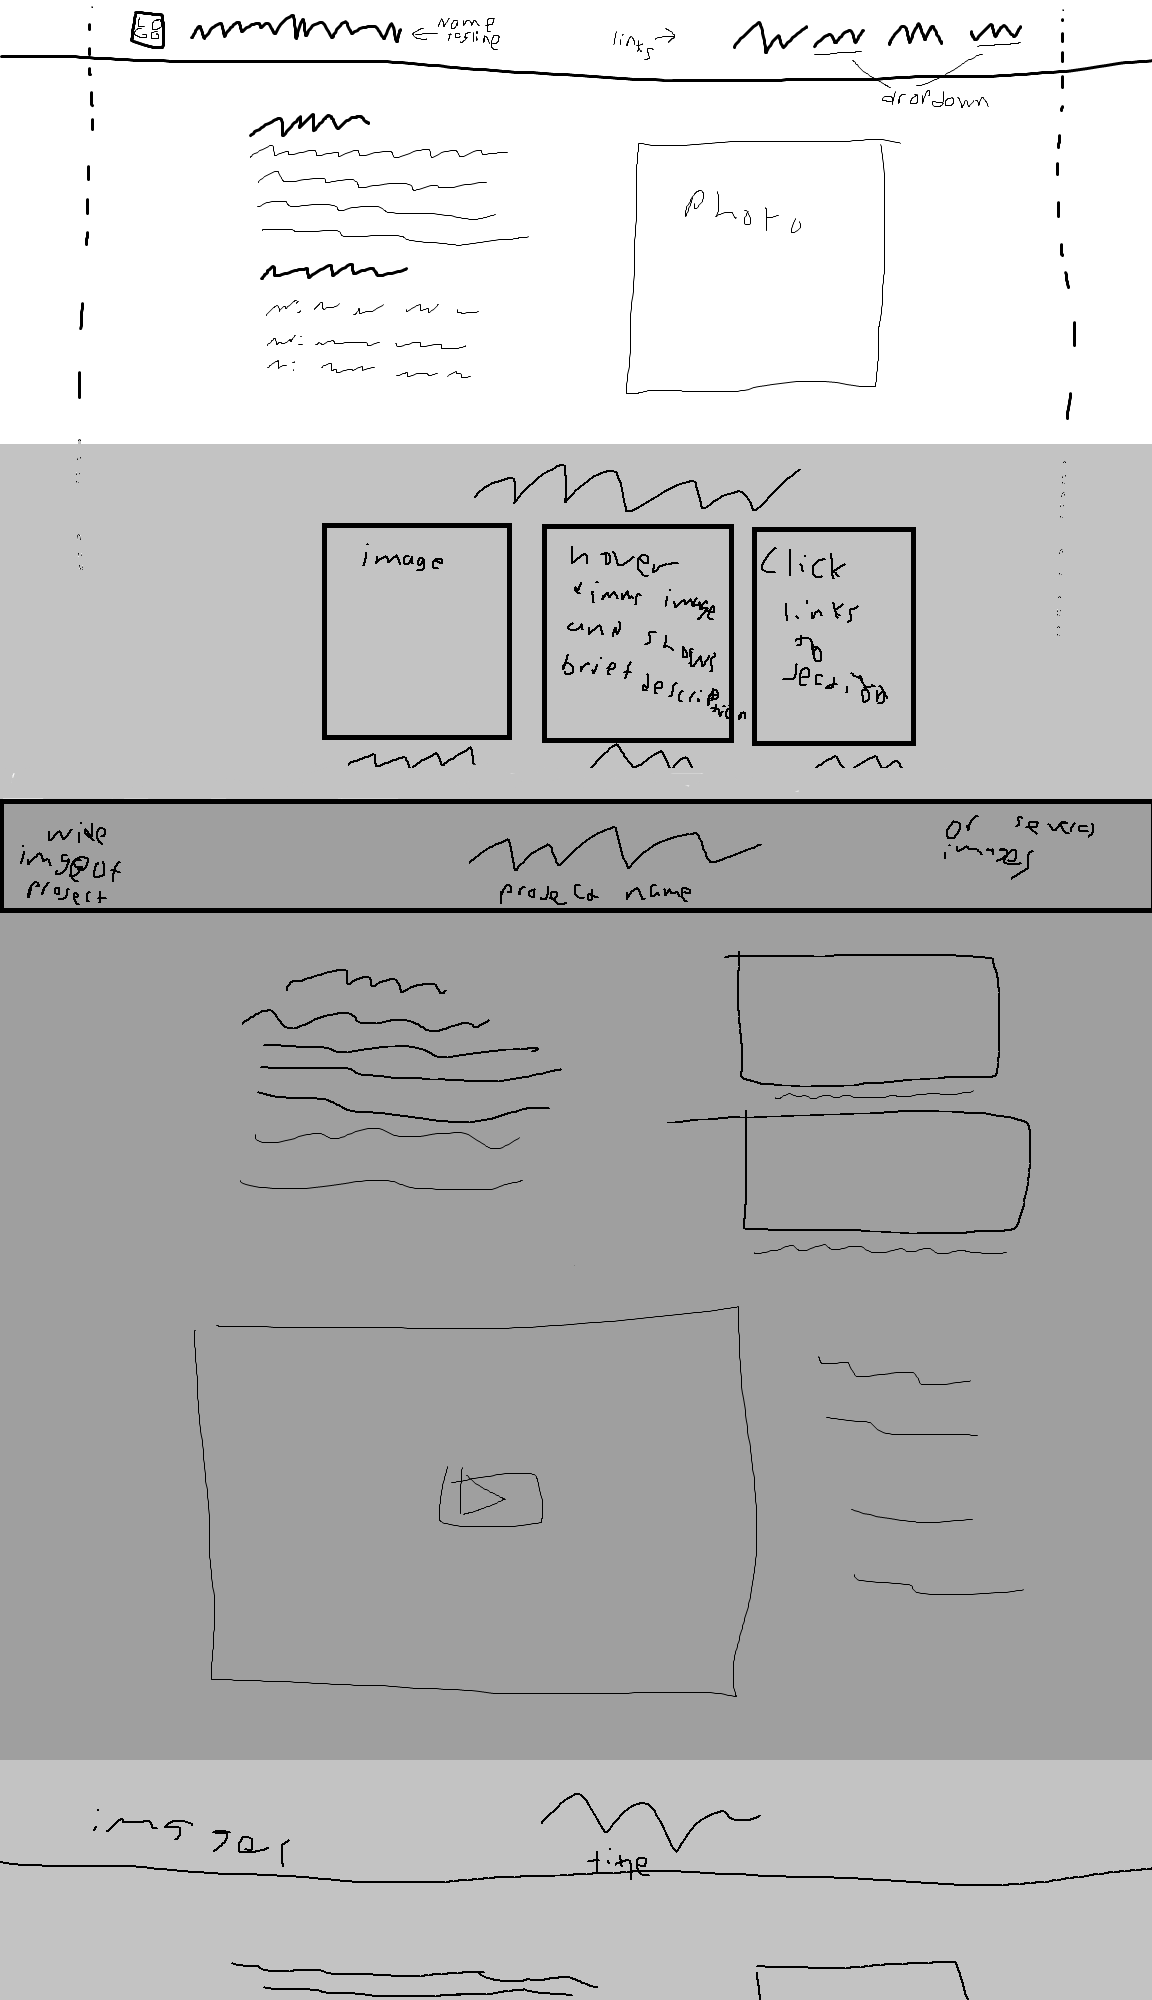 LO
GO
Name
links
dropdown
Photo
image
hover
dimms image
and shows
brief description
Click
links
to
section
wide
image of
project
project name
or several
images
title